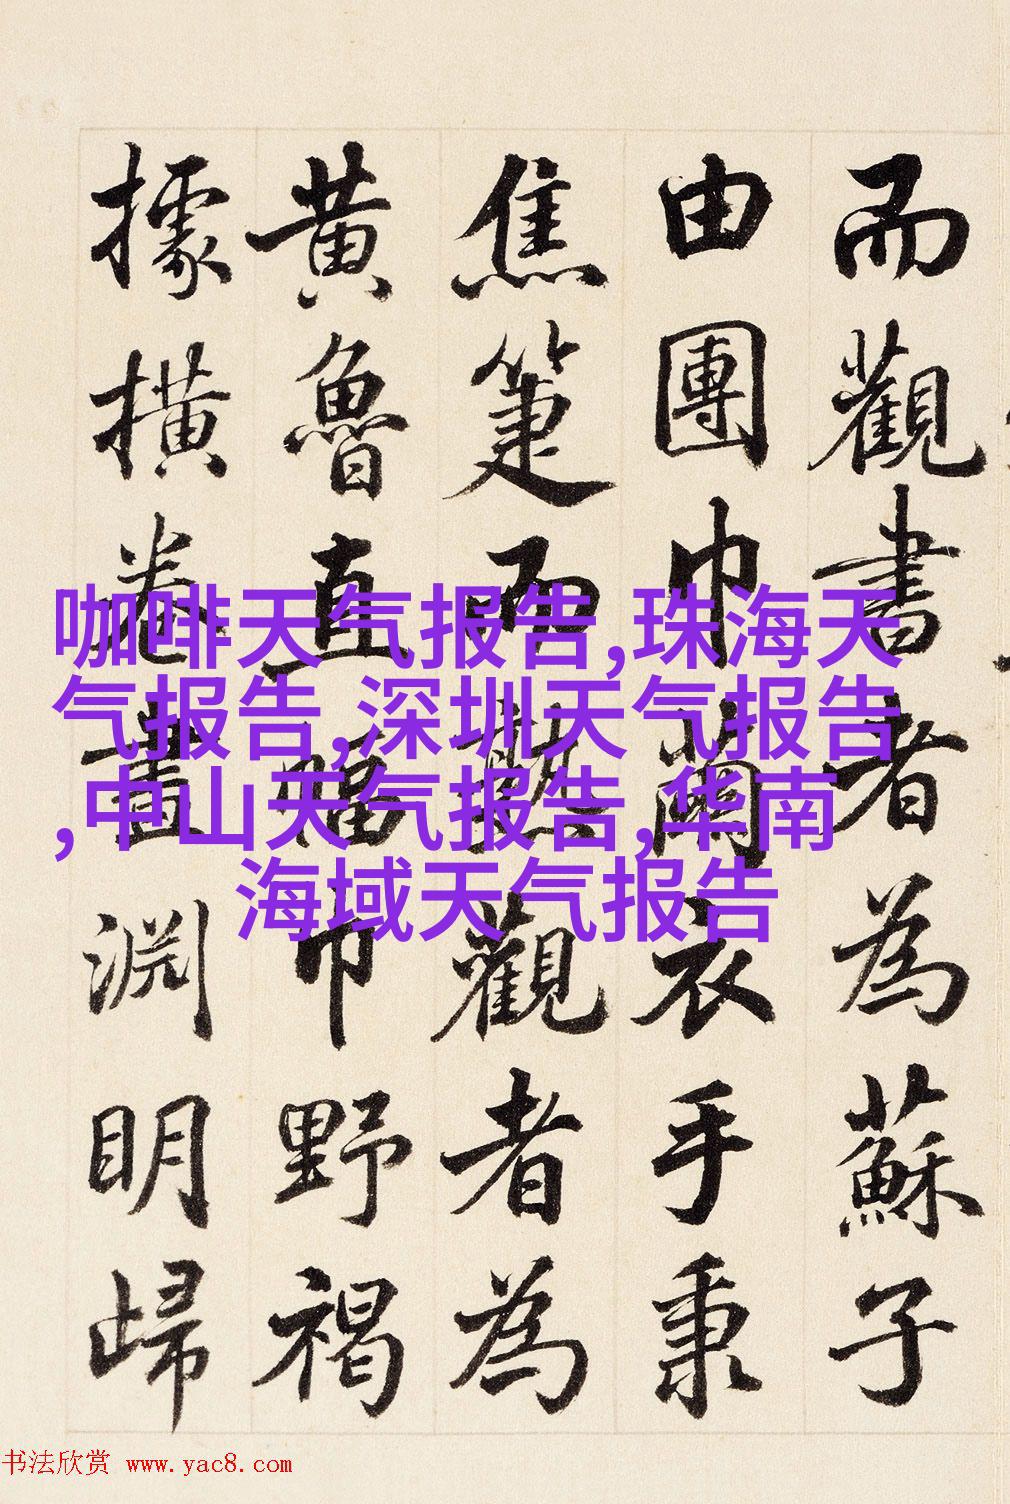 而觀書者為蘇子
由團巾繭衣手秉
焦箑而熟觀者為
黃魯直幅巾野褐
據橫卷畫淵明歸
咖啡天气报告,珠海天
气报告,深圳天气报告
,中山天气报告,华南
海域天气报告
书法欣赏 www.yac8.com